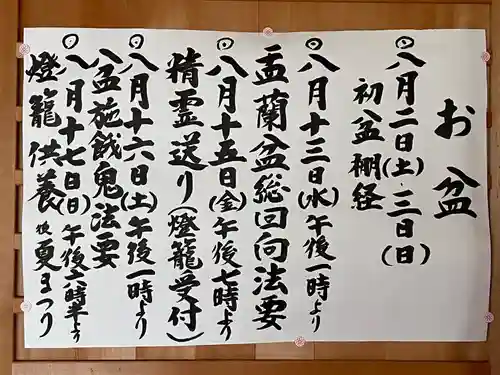 お盆
◎八月二日(土)・三日(日)
初盆棚経
◎八月十三日(水)午後一時より
盂蘭盆総回向法要
◎八月十五日(金)午後七時より
精霊送り(燈籠受付)
◎八月十六日(土)午後一時より
八盆施餓鬼法要
◎八月十七日(日)午後六時半より
燈籠供養後夏まつり